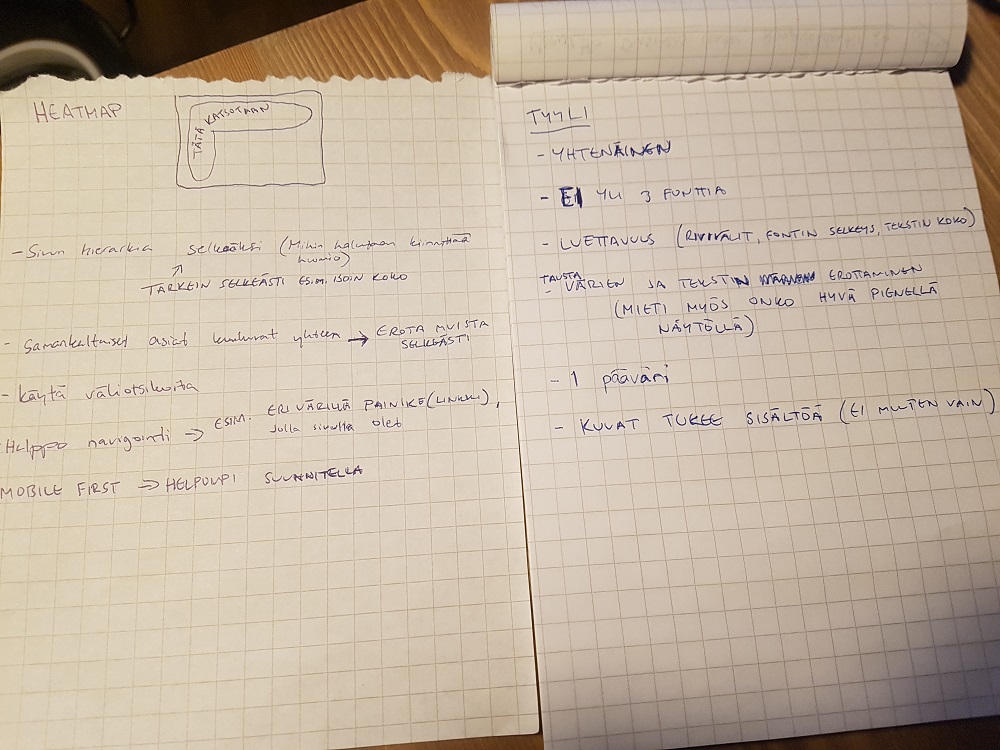 HEATMAP
TÄTÄ KATSOTAAN
- Sivun hierarkia selkeäksi (Mihin halutaan kiinnittää
huomio)
↗
TÄRKEIN SELKEÄSTI ESIM. ISOIN KOKO
- Samankaltaiset asiat kuuluvat yhteen → EROTA MUISTA
SELKEÄSTI
- Käytä väliotsikoita
Helppo navigointi → ESIM. ERI VÄRILLÄ PAINIKE (LINKKI),
jolla sivulla olet
MOBILE FIRST → HELPOMPI SUUNNITELLA
TYYLI
- YHTENÄINEN
- EI YLI 3 FONTTIA
- LUETTAVUUS (RIVIVÄLIT, FONTIN SELKEYS, TEKSTIN KOKO)
TAUSTA
- VÄRIEN JA TEKSTIN EROTTAMINEN
(MIETI MYÖS ONKO HYVÄ PIENELLÄ
NÄYTÖLLÄ)
- 1 pääväri
- KUVAT TUKEE SISÄLTÖÄ (EI MUUTEN VAIN)